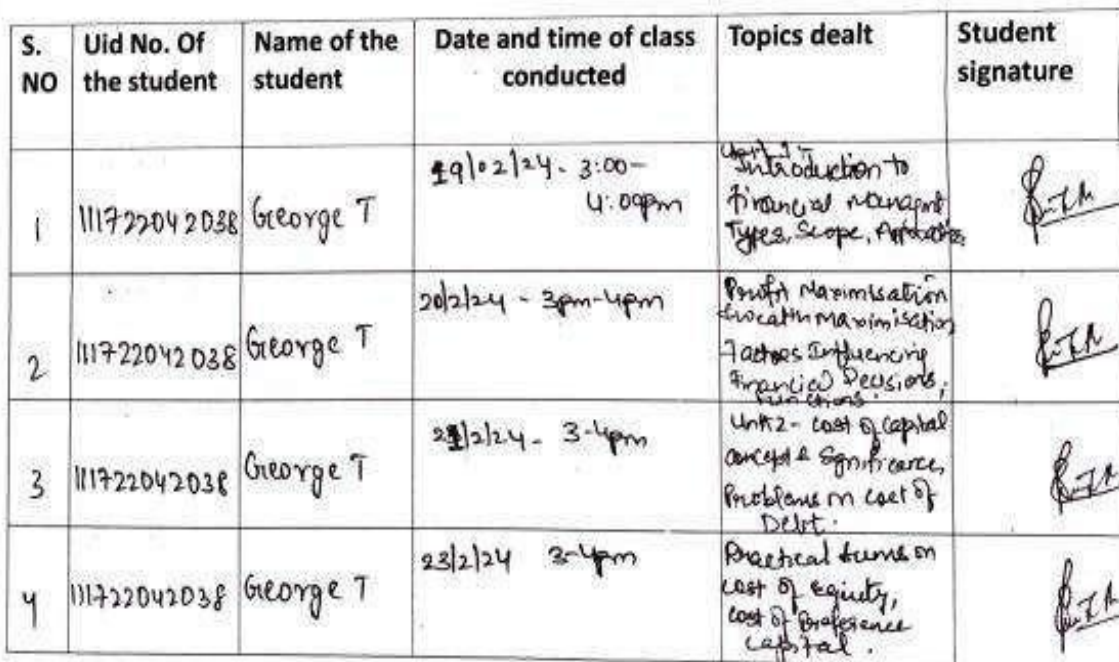 S. NO
Uid No. Of the student
Name of the student
Date and time of class conducted
Topics dealt
Student signature
1
111722042038
George T
19/02/24 - 3:00-
4:00pm
Introduction to
Financial
Types, Scope,
2
111722042038
George T
20/2/24 - 3pm-4pm
Profit Maximisation
Maximisation
Factors Influencing
Financial Decisions,
Functions.
3
111722042038
George T
21/2/24 - 3-4pm
Unit 2 - Cost of capital
concept & Significance,
Problems on cost of
Debt.
4
111722042038
George T
23/2/24 3-4pm
Practical sums on
cost of equity,
cost of preference
capital.